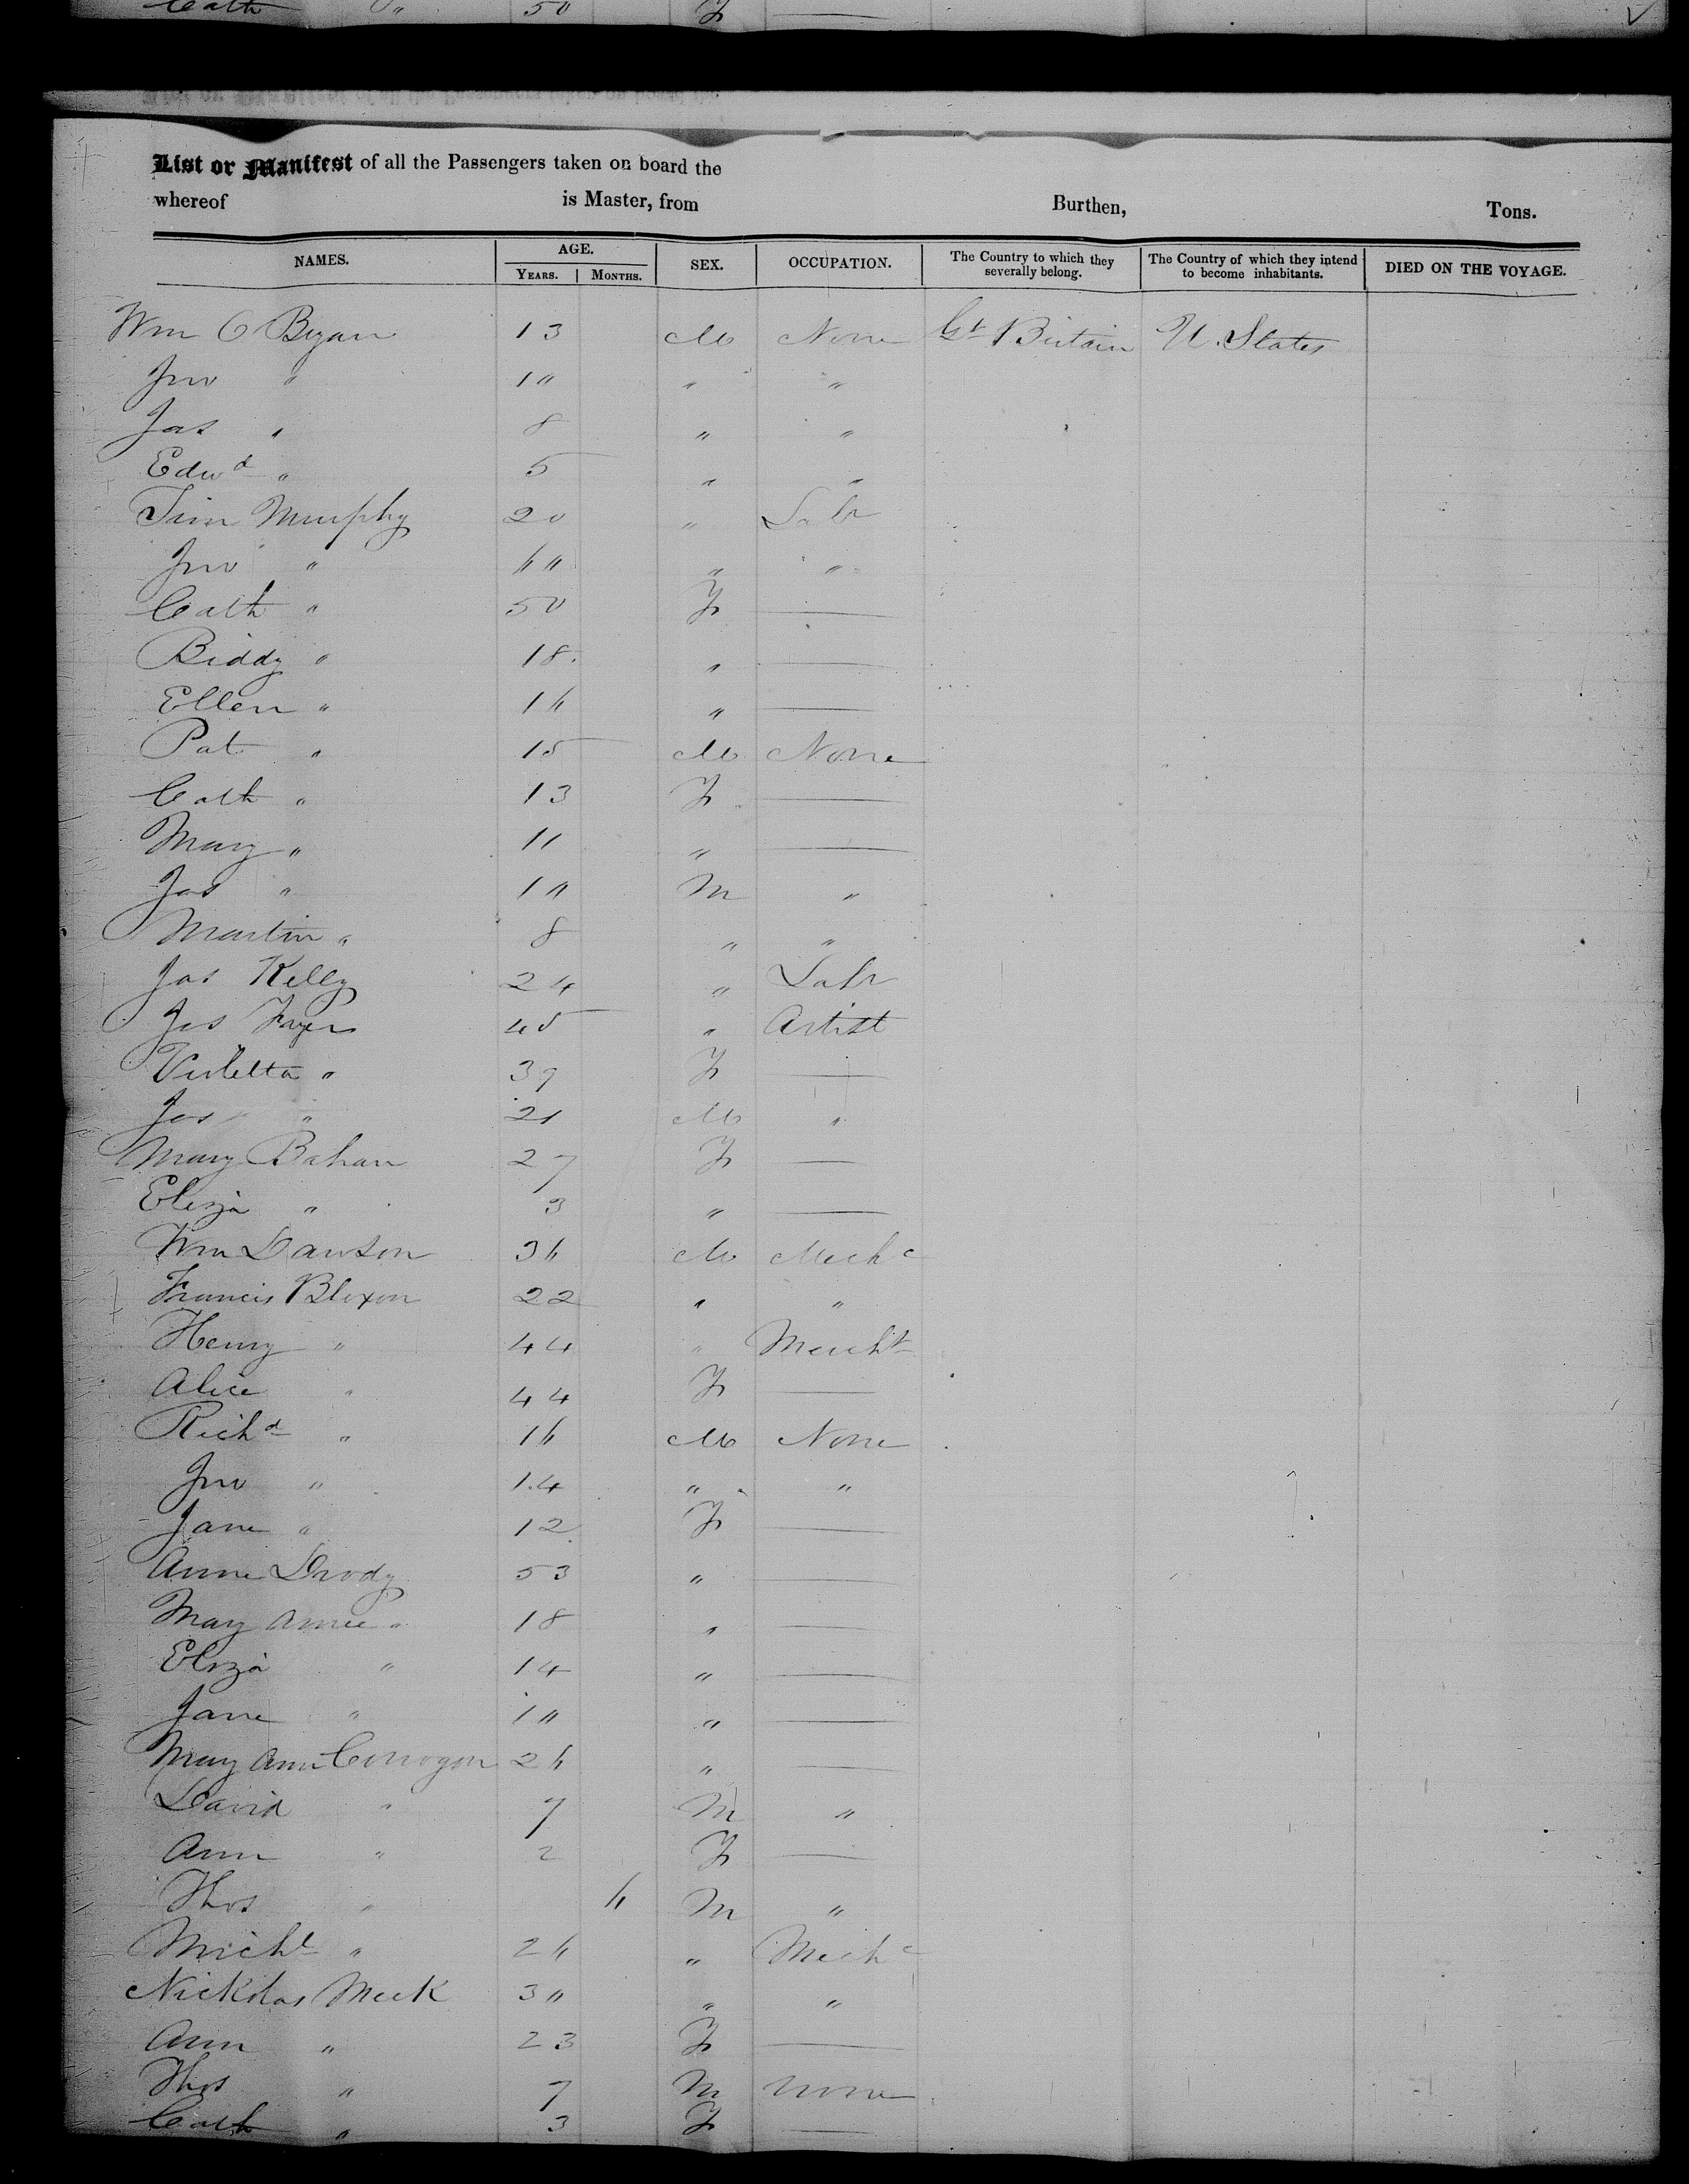 Cath " 50 F —
List or Manifest of all the Passengers taken on board the
whereof is Master, from Burthen, Tons.
NAMES. AGE. SEX. OCCUPATION. The Country to which they severally belong. The Country of which they intend to become inhabitants. DIED ON THE VOYAGE.
YEARS. MONTHS.
Wm O Bryan 13 M None Gt Britain U. States
Jno " 10 " "
Jas " 8 " "
Edwd " 5 " "
Tim Murphy 20 " Labr
Jno " 60 " "
Cath " 50 F —
Biddy " 18 " —
Ellen " 16 " —
Pat " 15 M None
Cath " 13 F —
Mary " 11 " —
Jas " 10 M "
Martin " 8 " "
Jas Kelly 24 " Labr
Jas 45 " Artist
Violetta " 39 F —
Jas " 21 M "
Mary Bahan 27 F —
Eliza " 3 " —
Wm Dawson 36 M Mechc
Francis Bloxon 22 " "
Henry " 44 " Mercht
Alice " 44 F —
Richd " 16 M None
Jno " 14 " "
Jane " 12 F —
Anne 53 " —
Mary Anne " 18 " —
Eliza " 14 " —
Jane " 10 " —
Mary Ann 26 " —
David " 7 M "
Ann " 2 F —
Thos " 6 M "
Michl " 26 " Mechc
Nickolas Meek 30 " "
Ann " 23 F —
Thos " 7 M None
Cath " 3 F —